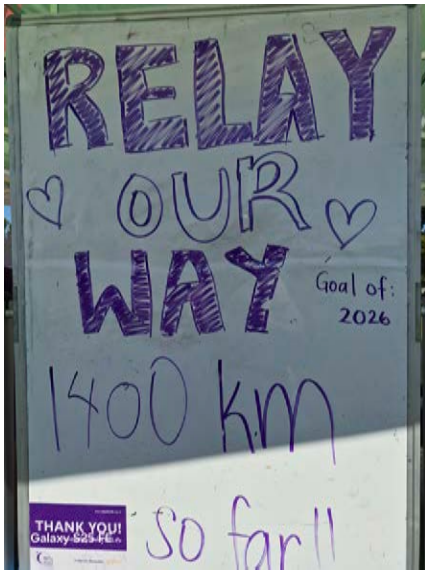 RELAY
OUR
WAY
Goal of:
2026
1400 km
so far!!
THANK YOU!
Galaxy S25 FE